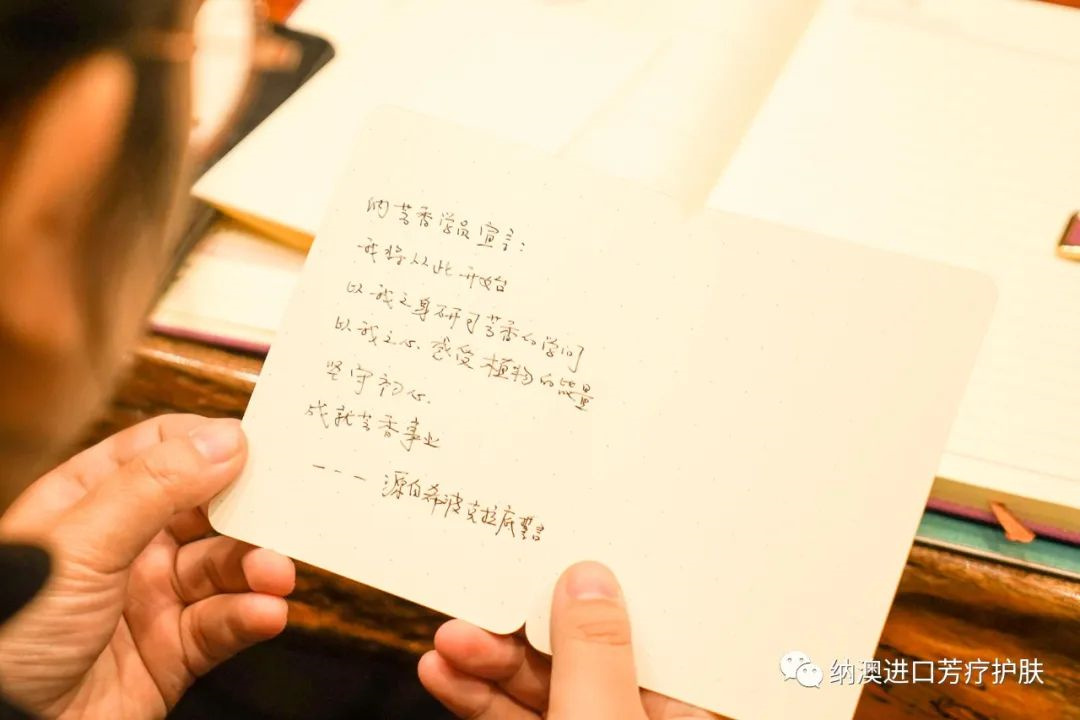 纳芳香学员宣言：
我将从此开始
以我之身研习芳香的学问
以我之心感受植物的能量
坚守初心.
成就芳香事业
--- 源自希波克拉底誓言
纳澳进口芳疗护肤